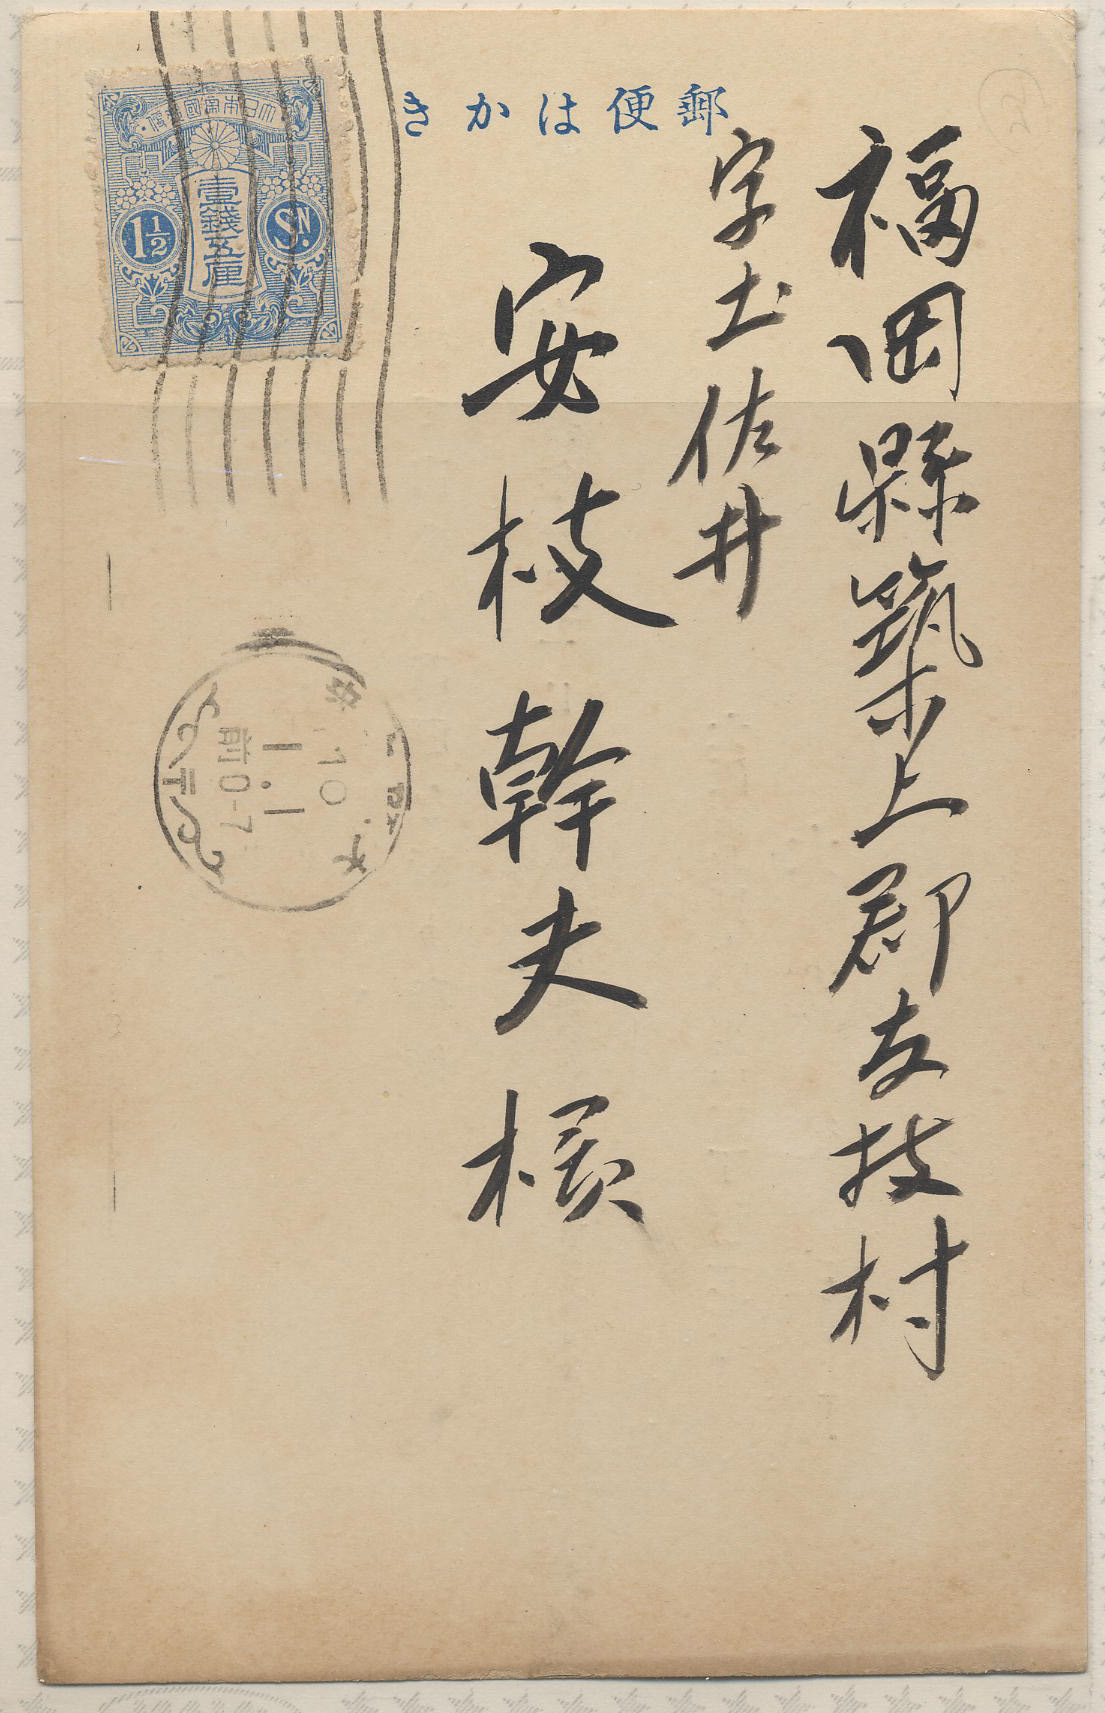 郵便はかき
大日本帝國郵便
壹錢五厘
1½
SN.
福岡縣築上郡友枝村
字土佐井
安枝幹夫様
10
1.1
前0-7